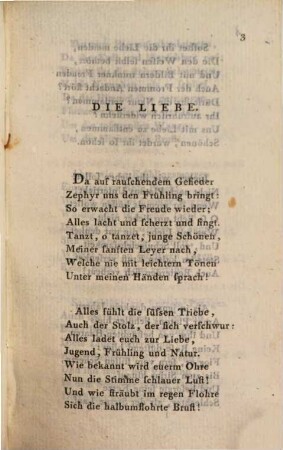 3
DIE LIEBE.
Da auf rauschendem Gefieder
Zephyr uns den Frühling bringt:
So erwacht die Freude wieder;
Alles lacht und scherzt und singt.
Tanzt, o tanzet, junge Schönen,
Meiner sanften Leyer nach,
Welche nie mit leichtern Tönen
Unter meinen Händen sprach!
Alles fühlt die süssen Triebe,
Auch der Stolz, der sich verschwur:
Alles ladet euch zur Liebe,
Jugend, Frühling und Natur.
Wie bekannt wird euerm Ohre
Nun die Stimme schlauer Lust!
Und wie sträubt im regen Flohre
Sich die halbumflohrte Brust!